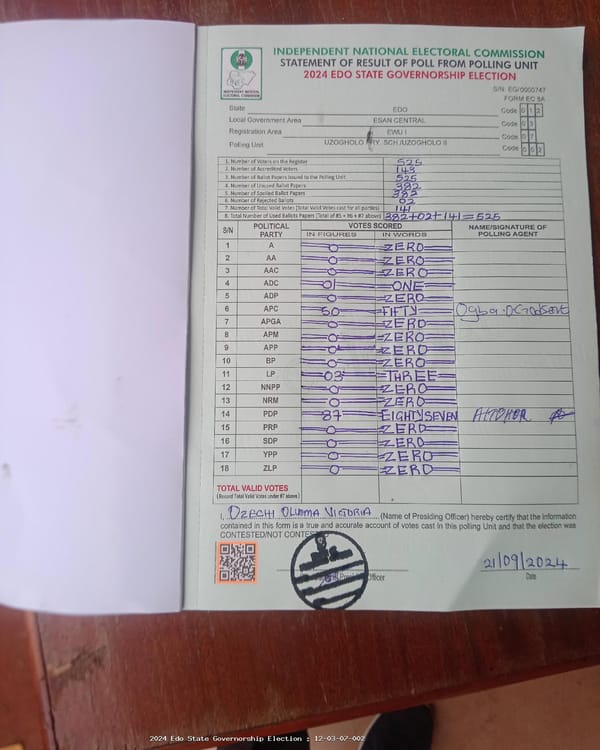 INDEPENDENT NATIONAL ELECTORAL COMMISSION
STATEMENT OF RESULT OF POLL FROM POLLING UNIT
2024 EDO STATE GOVERNORSHIP ELECTION
INDEPENDENT NATIONAL ELECTORAL COMMISSION
S/N: EG/0000747
FORM EC 8A
State EDO Code 0 1 2
Local Government Area ESAN CENTRAL Code 0 3
Registration Area EWU I Code 0 7
Polling Unit UZOGHOLO PRY. SCH./UZOGHOLO II Code 0 0 2
1. Number of Voters on the Register 525
2. Number of Accredited Voters 143
3. Number of Ballot Papers Issued to the Polling Unit 525
4. Number of Unused Ballot Papers 382
5. Number of Spoiled Ballot Papers
6. Number of Rejected Ballots 02
7. Number of Total Valid Votes (Total Valid Votes cast for all parties) 141
8. Total Number of Used Ballots Papers (Total of #5 + #6 + #7 above) 382+02+141=525
S/N POLITICAL PARTY VOTES SCORED NAME/SIGNATURE OF POLLING AGENT
IN FIGURES IN WORDS
1 A 0 ZERO
2 AA 0 ZERO
3 AAC 0 ZERO
4 ADC 01 ONE
5 ADP 0 ZERO
6 APC 50 FIFTY
7 APGA 0 ZERO
8 APM 0 ZERO
9 APP 0 ZERO
10 BP 0 ZERO
11 LP 03 THREE
12 NNPP 0 ZERO
13 NRM 0 ZERO
14 PDP 87 EIGHTY SEVEN
15 PRP 0 ZERO
16 SDP 0 ZERO
17 YPP 0 ZERO
18 ZLP 0 ZERO
TOTAL VALID VOTES
(Record Total Valid Votes under #7 above)
I, VICTORIA (Name of Presiding Officer) hereby certify that the information
contained in this form is a true and accurate account of votes cast in this polling Unit and that the election was
CONTESTED/NOT CONTESTED
Officer
21/09/2024
Date
2024 Edo State Governorship Election : 12-03-07-002